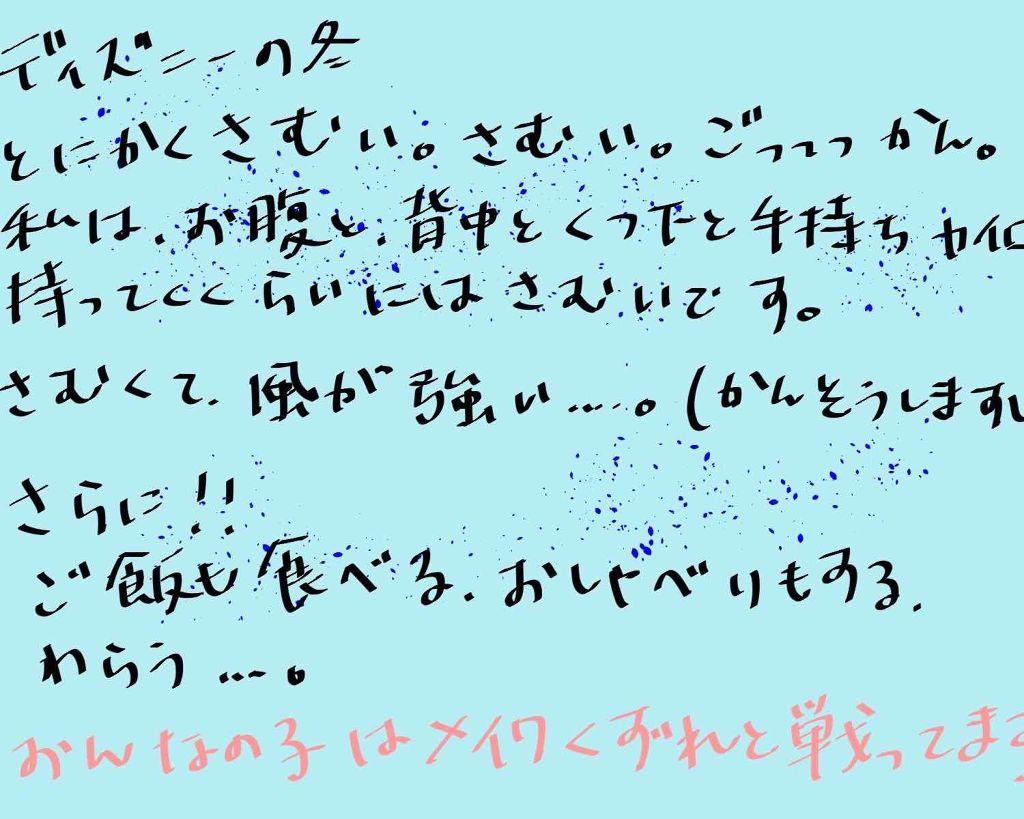 ディズニーの冬
とにかくさむい。さむい。ごっっっかん。
私は、お腹と、背中とくつ下と手持ちカイロ
持ってくくらいにはさむいです。
さむくて、風が強い…。(かんそうしますし
さらに!!
ご飯も食べる、おしゃべりもする、
わらう…。
おんなの子はメイクくずれと戦ってます